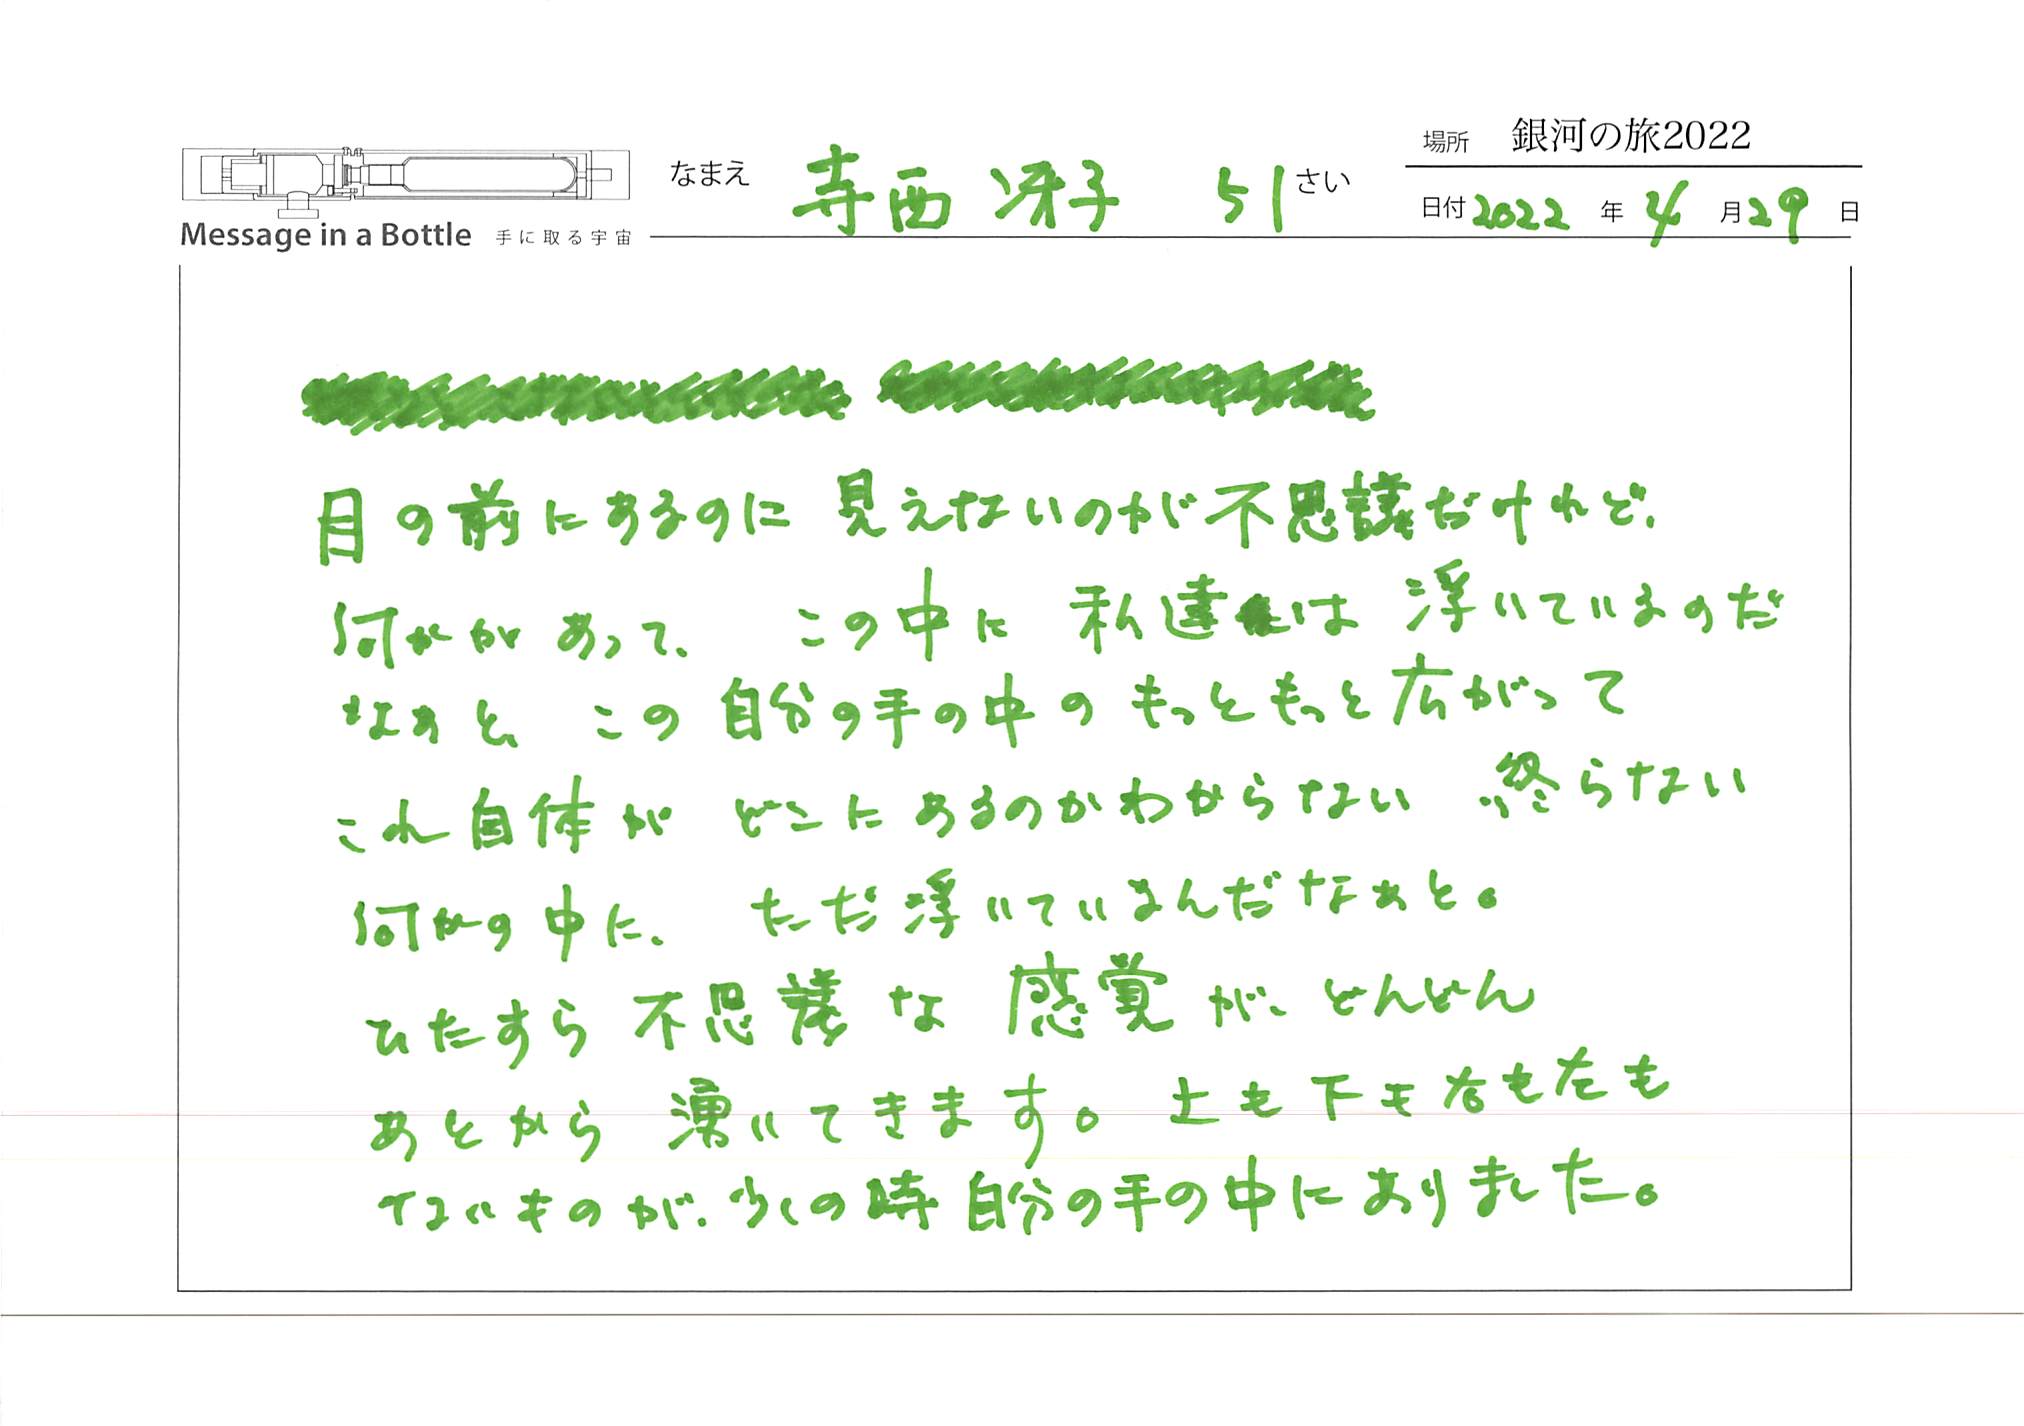 場所 銀河の旅2022
なまえ 寺西 冴子 51 さい
日付 2022 年 4 月 29 日
Message in a Bottle 手に取る宇宙
目の前にあるのに 見えないのが不思議だけれど、
何かがあって、 この中に 私達は 浮いているのだ
なぁと、この 自分の手の中の もっともっと広がって
これ自体が どこにあるのかわからない 終らない
何かの中に、 ただ浮いているんだなぁと。
ひたすら不思議な 感覚が、どんどん
あとから 湧いてきます。上も下も右も左も
ないものが、今の時 自分の手の中にありました。